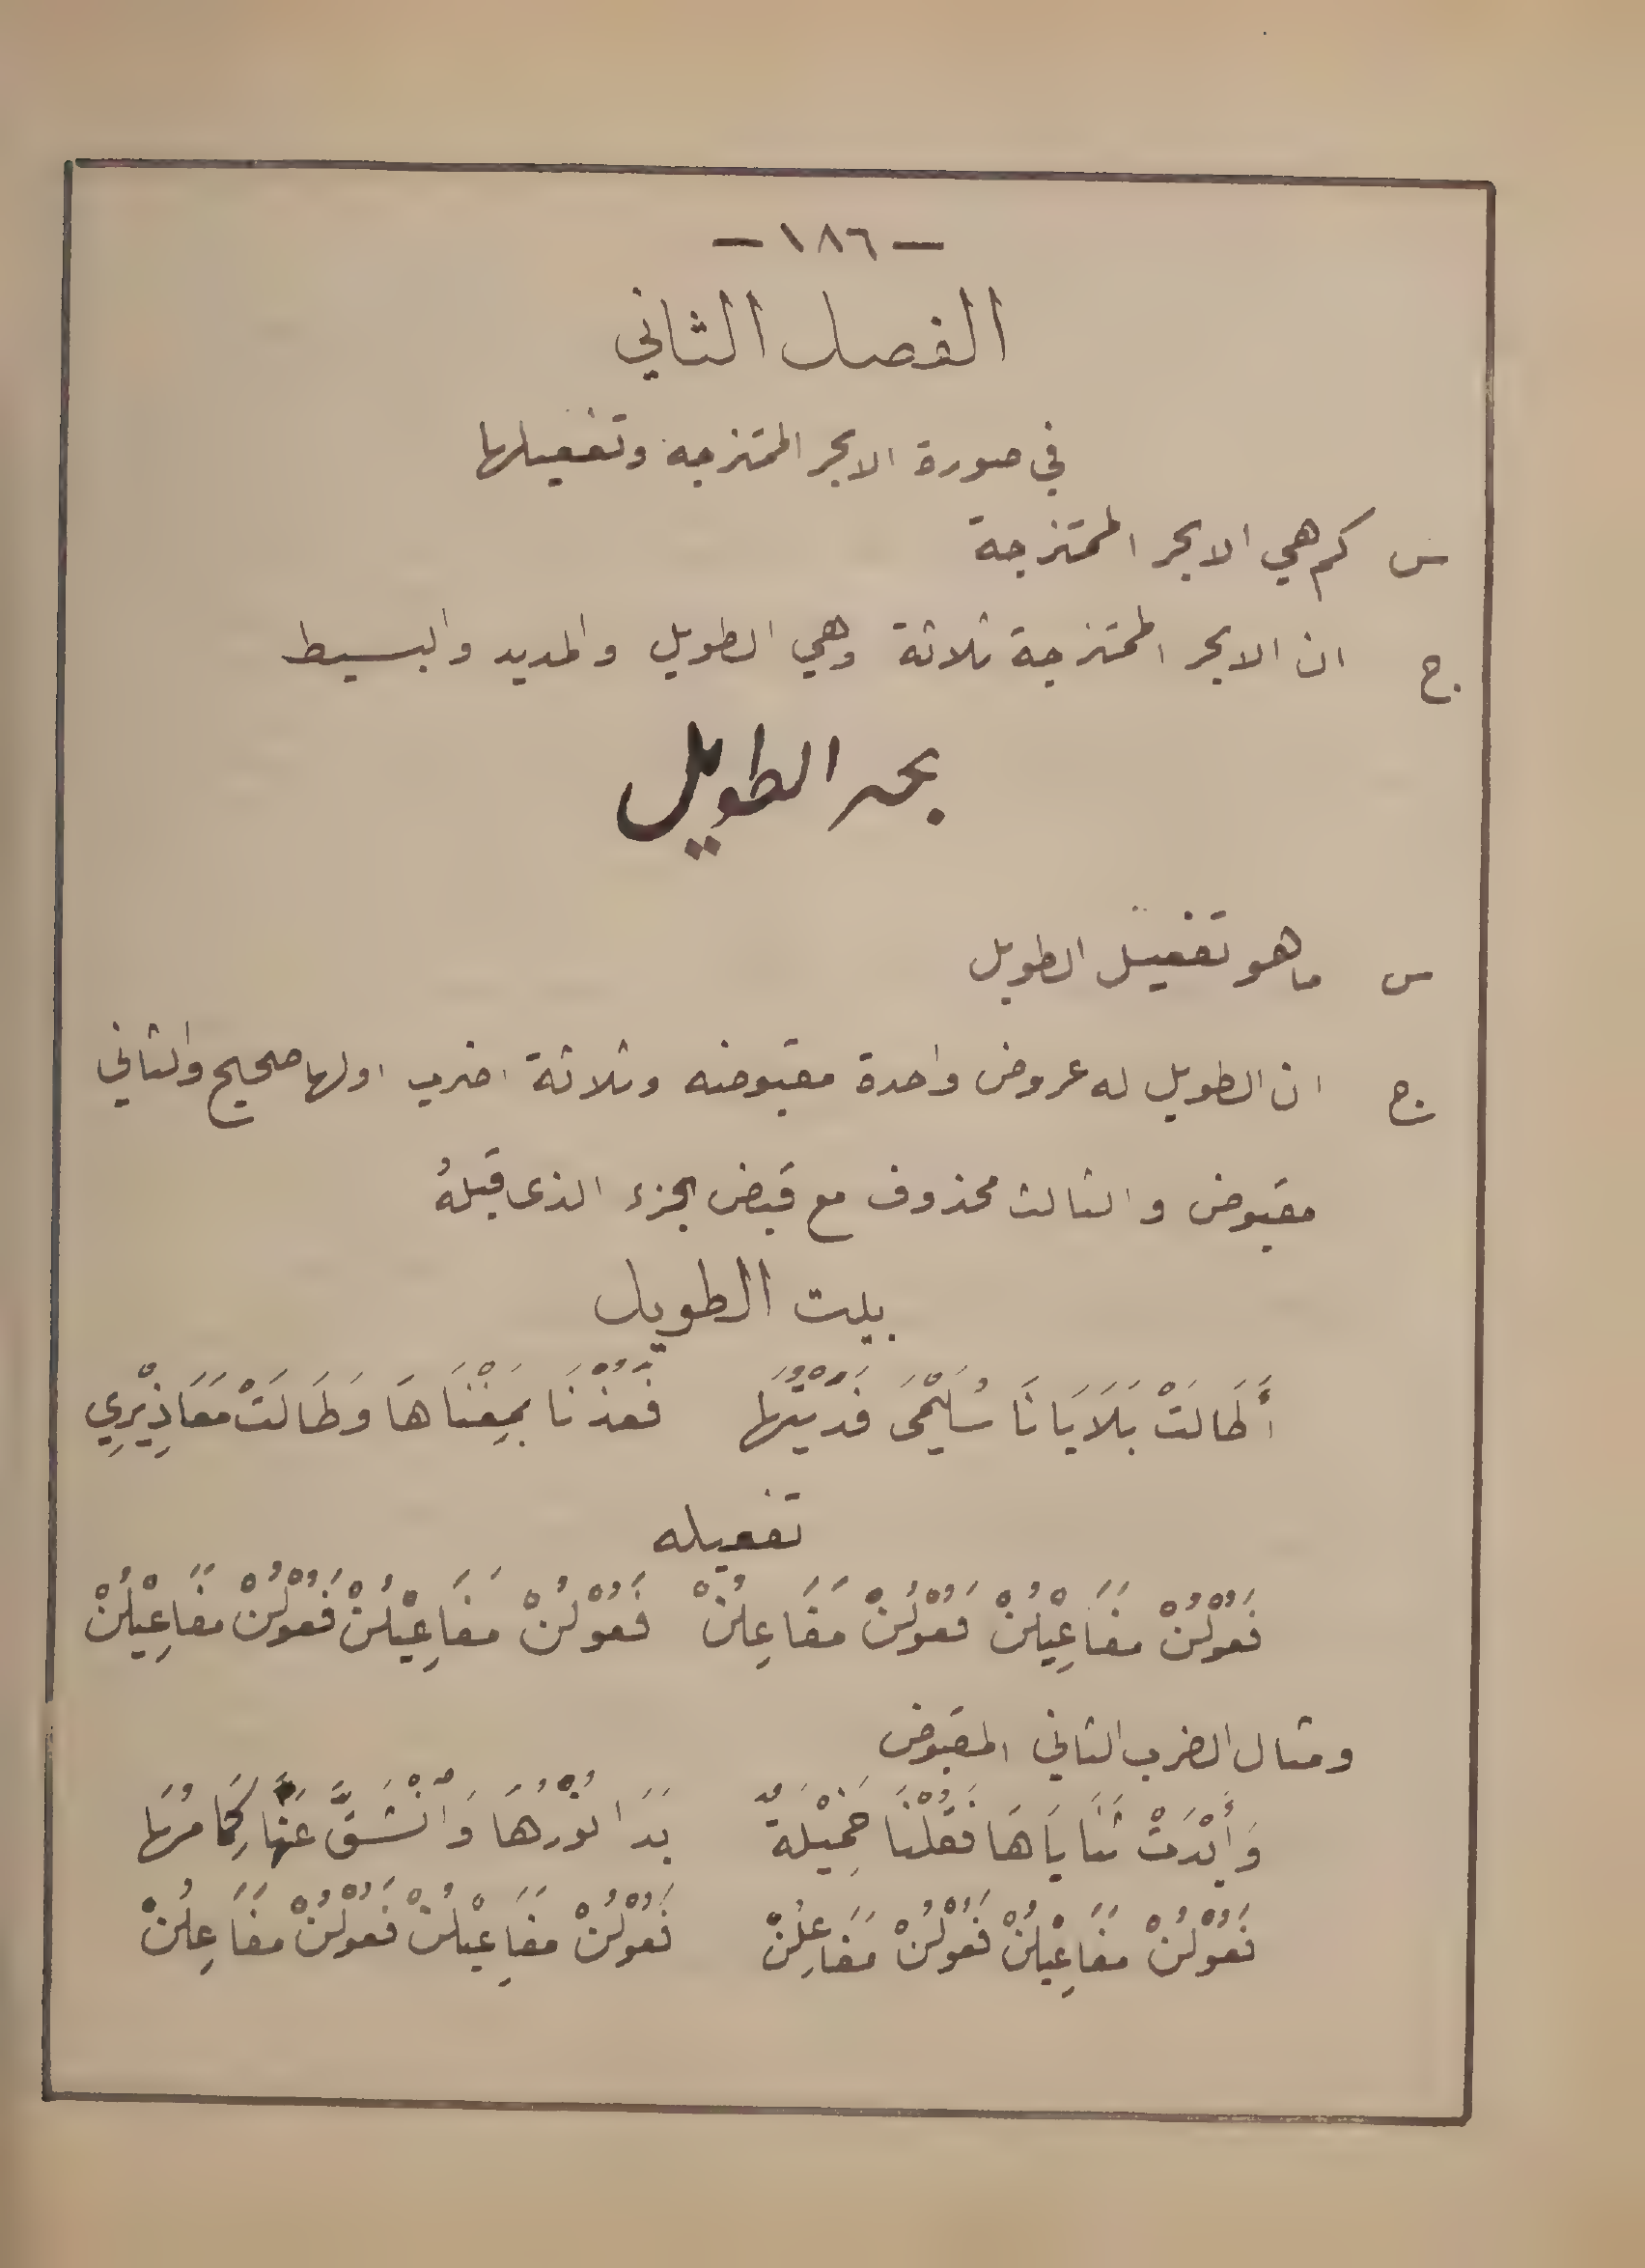 — ١٨٦ —
الفصل الثاني
في صورة الابحر الممتزجه وتفعيلها
س كم هي الابحر الممتزجة
ج ان الابحر الممتزجة ثلاثة وهي الطويل والمديد والبسيط
بحر الطويل
س ما هو تفعيل الطويل
ج ان الطويل له عروض واحدة مقبوضه وثلاثة اضرب اولها صحيح والثاني
مقبوض والثالث محذوف مع قبض الجزء الذى قبلهُ
بيت الطويل
أَطَالَتْ بَلَايَانَا سُلَيْمَى فَدَيْتُهَا فَعُذْنَا بِمَغْنَاهَا وَطَالَتْ مَعَاذِيْرِي
تفعيله
فَعُوْلُنْ مفَاَعِيْلُنْ فَعُوْلُنْ مَفَاَعِلُنْ فَعُوْلُنْ مَفاَعِيْلُنْ فَعُوْلُنْ مفَاَعِيْلُنْ
ومثال الضرب الثاني المقبوض
وَأَبْدَتْ ثَنَايَاهَا فَقُلْنَا خَمِيْلَةٌ بَدَا نُوْرُهَا وَانْشَقَّ عَنْهَا كِمَامُهَا
فَعُوْلُنْ مفَاَعِيْلُنْ فَعُوْلُنْ مَفَاَعِلُنْ فَعُوْلُنْ مفَاَعِيْلُنْ فَعُوْلُنْ مفَاَعِلُنْ